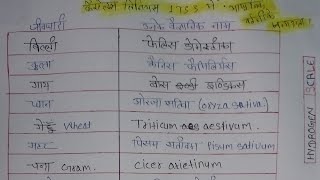 कैरोलस लिनियस 1753 में
जीवधारी उनके वैज्ञानिक नाम
बिल्ली फेलिस डोमेस्टिका
कुत्ता कैनिस फैमिलियरिस
गाय बॉस इण्डिकस
धान ओरजा सतिवा (oryza sativa)
गेहूं wheat Triticum aestivum.
मटर पिसम सतिवम Pisum sativum
चना Cream. Cicer arietinum
HYDROGEN SCALE